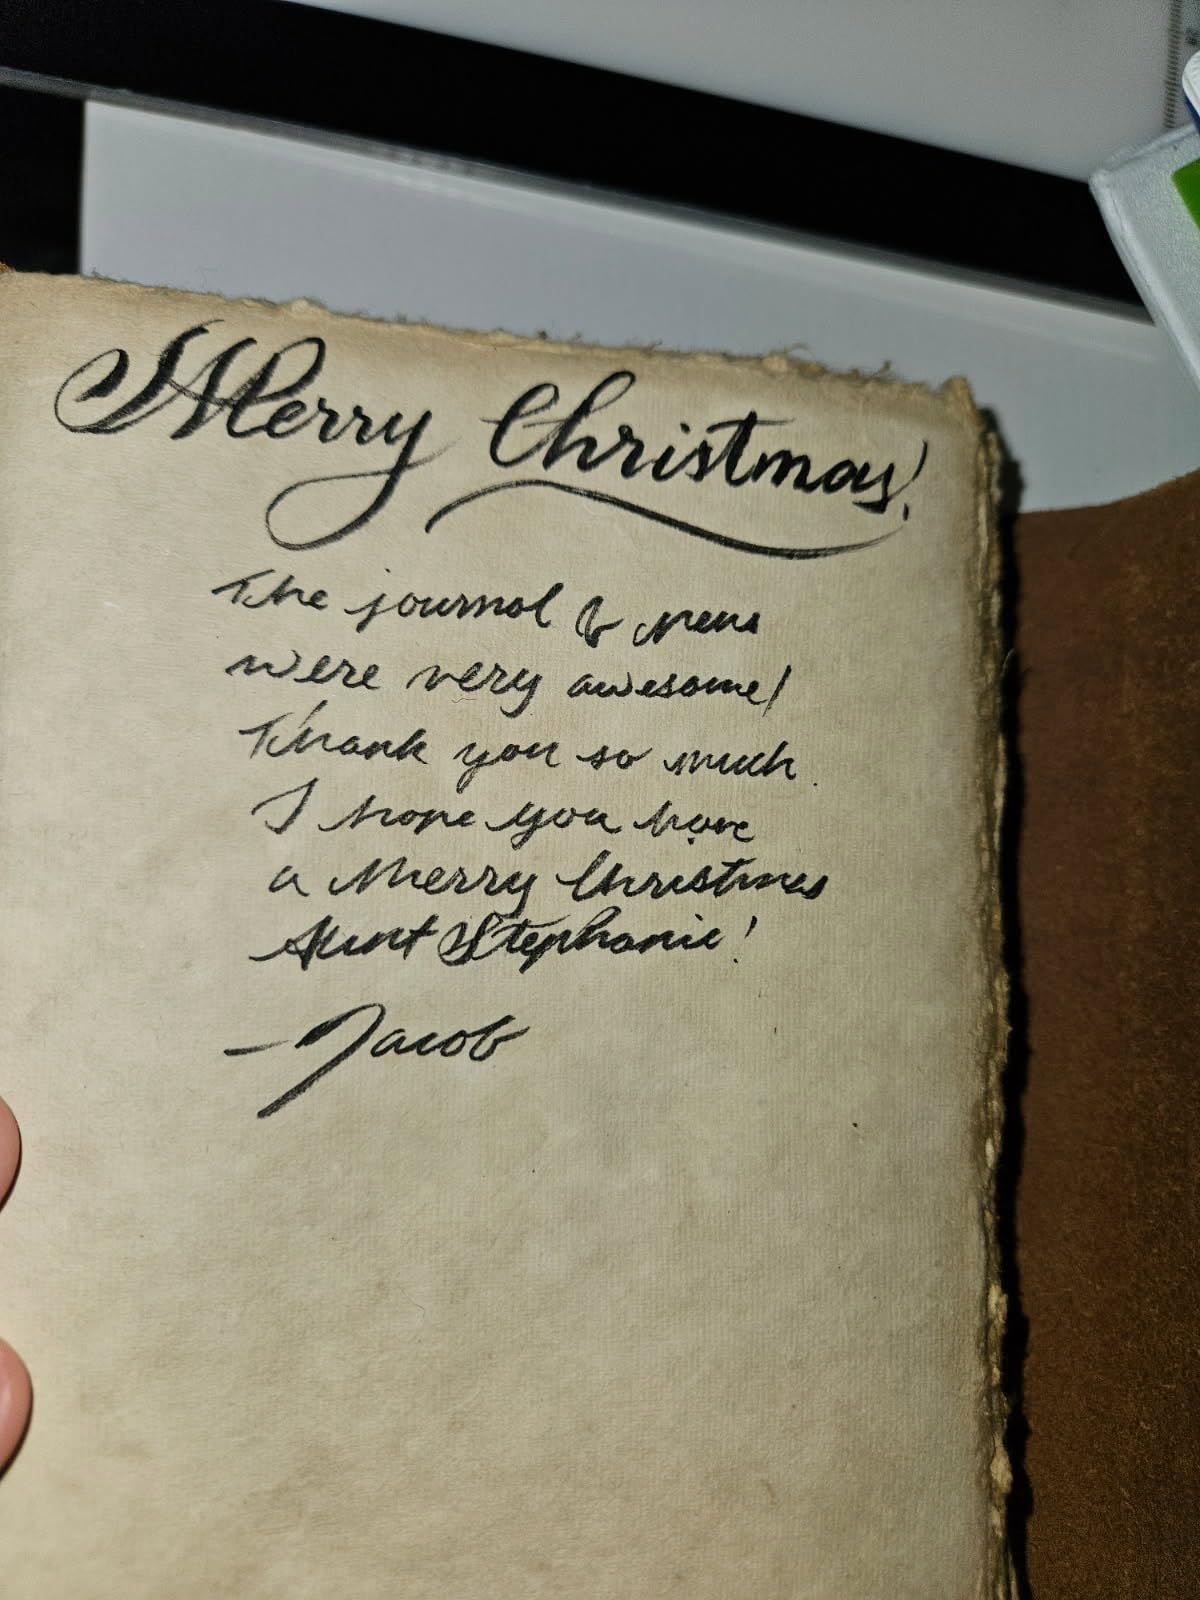 Merry Christmas!
The journal & pens
were very awesome!
Thank you so much.
I hope you have
a Merry Christmas
Aunt Stephanie!
- Jacob